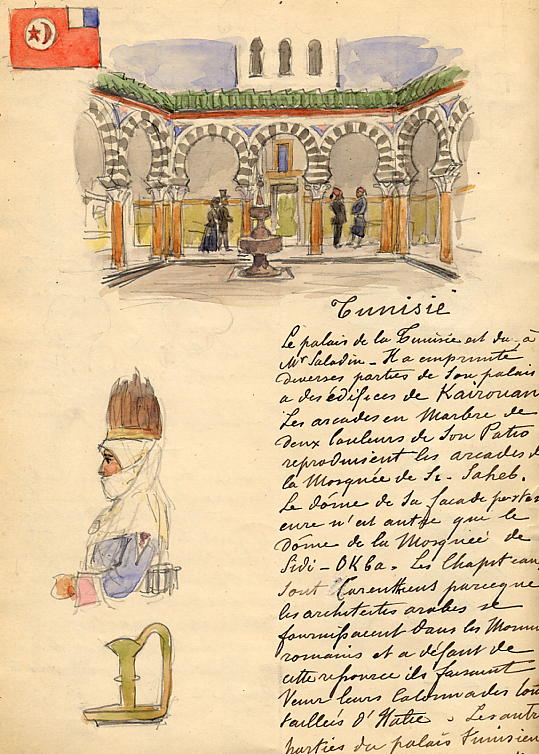 Tunisie
Le palais de la Tunisie est du à
Mr Saladin - Il a emprunté
diverses parties de son palais
a des édifices de Kairouan
Les arcades en Marbre de
deux couleurs de son Patio
reproduisent les arcades d
la Mosquée de Si-Saheb.
Le dôme de sa façade posté
eure n'est autre que le
Dôme de la Mosquée de
Sidi-OKba. Les Chapiteau
sont parceque
les architectes arabes se
fournissaient dans les Monu
romains et a défaut de
cette ressource ils faisaient
Venir leurs Colonnades tou
taillées d'Italie. Les autr
parties du palais tunisien